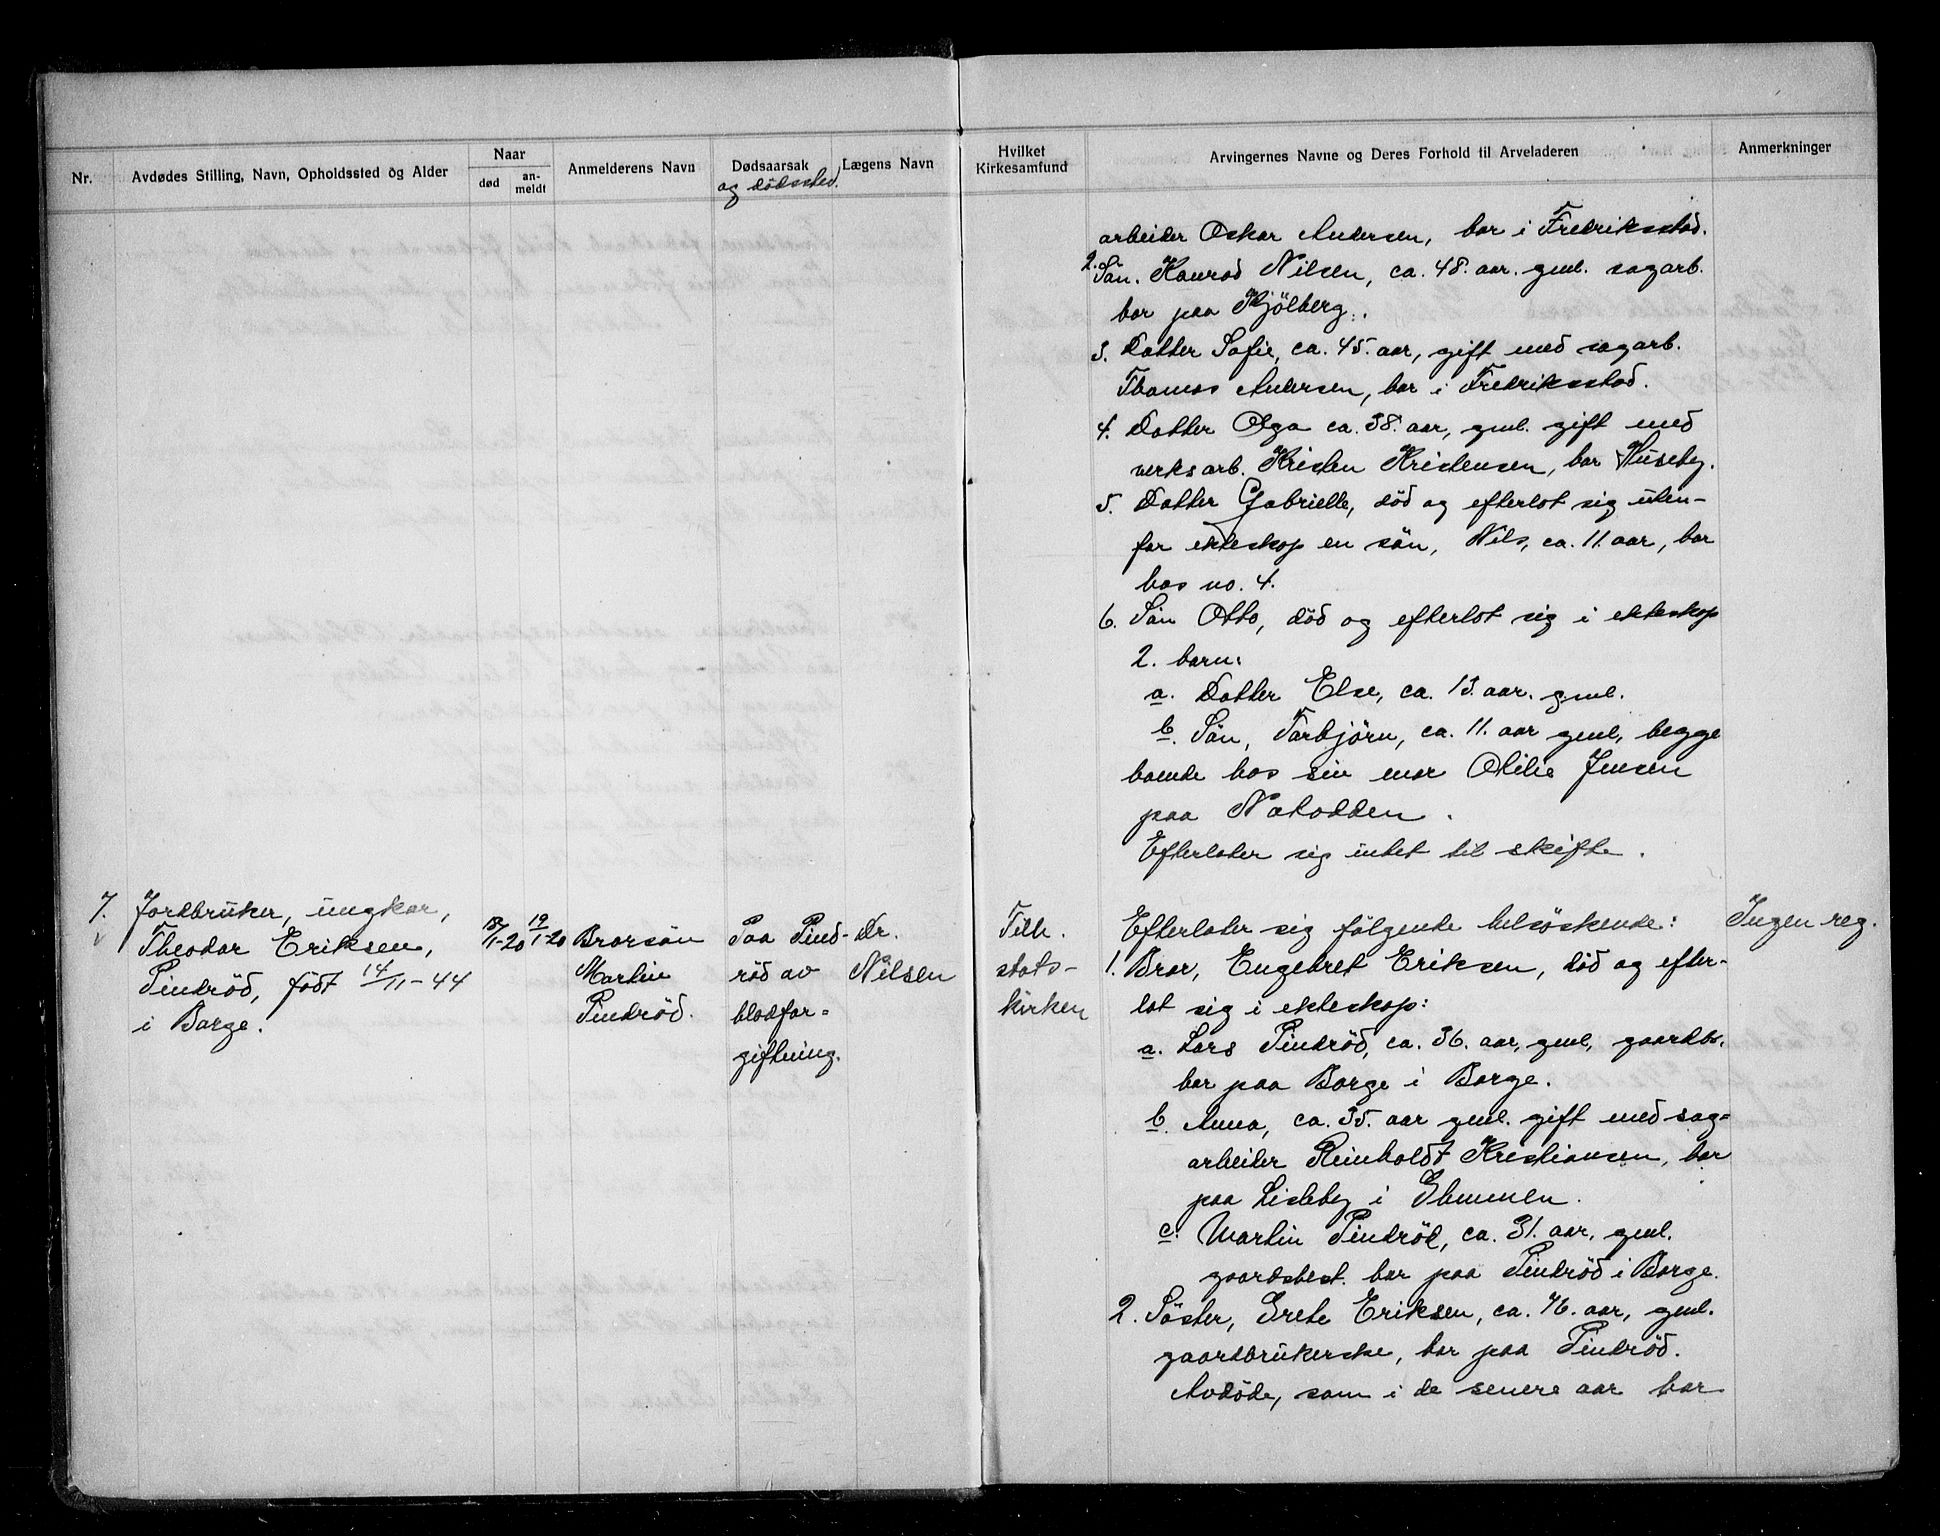 Nr.
Avdødes Stilling, Navn, Opholdssted og Alder
Naar
død
an-
meldt
Anmelderens Navn
Dødsaarsak
og dödssted.
Lægens Navn
Hvilket
Kirkesamfund
Arvingernes Navne og Deres Forhold til Arveladeren
Anmerkninger
arbeider Oskar Andersen, bor i Fredriksstad.
2. Sön. Konrad Nilsen, ca. 48. aar. gml. sagarb.
bor paa Kjölberg.
3. Datter Sofie, ca. 45. aar, gift med sagarb.
Thomas Andersen, bor i Fredriksstad.
4. Datter Olga ca. 38. aar, gml. gift med
verksarb. Kristen Kristensen, bor Huseby.
5. Datter Gabrielle, död og efterlot sig uten-
for ekteskap en sön, Nils, ca. 11. aar, bor
hos no. 4.
6. Sön Otto, död og efterlot sig i ekteskap
2. barn:
a. Datter Else, ca. 13. aar. gml.
b. Sön, Torbjörn, ca. 11. aar gml, begge
boende hos sin mor Olilie Jensen
paa Notodden.
Efterlater sig intet til skifte.
7.
Jordbruker, ungkar,
Theodor Eriksen,
Pindröd, født 14/11-44
i Borge.
13/1-20
19/1-20
Brorsön
Martin
Pindröd.
Paa Pind-
röd av
blodfor-
giftning.
Dr.
Nilsen
Tilh.
stats-
kirken
Efterlater sig følgende helsøskende:
1. Bror, Engebret Eriksen, död og efter-
lot sig i ekteskap:
a. Lars Pindröd, ca. 36. aar, gml, gaardbr.
bor paa Borge i Borge.
b. Anna, ca. 35. aar gml. gift med sag-
arbeider Reinholdt Kristiansen, bor
paa Lisleby i Glemmen.
c. Martin Pindröd, ca. 31. aar, gml.
gaardsbest. bor paa Pindröd i Borge.
2. Söster, Grete Eriksen, ca. 76. aar, gml.
gaardbrukerske, bor paa Pindröd.
Avdøde, som i de senere aar har
Ingen reg.